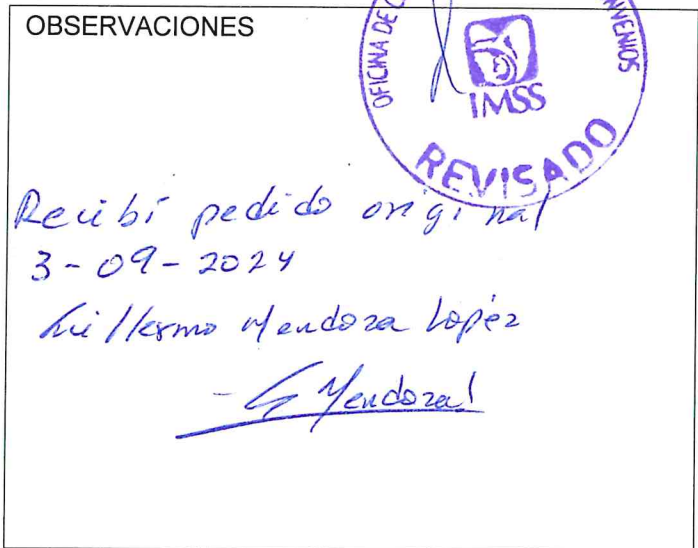 OBSERVACIONES
OFICINA DE
IMSS
REVISADO
Recibí pedido original
3-09-2024
Guillermo Mendoza López
G Mendoza L